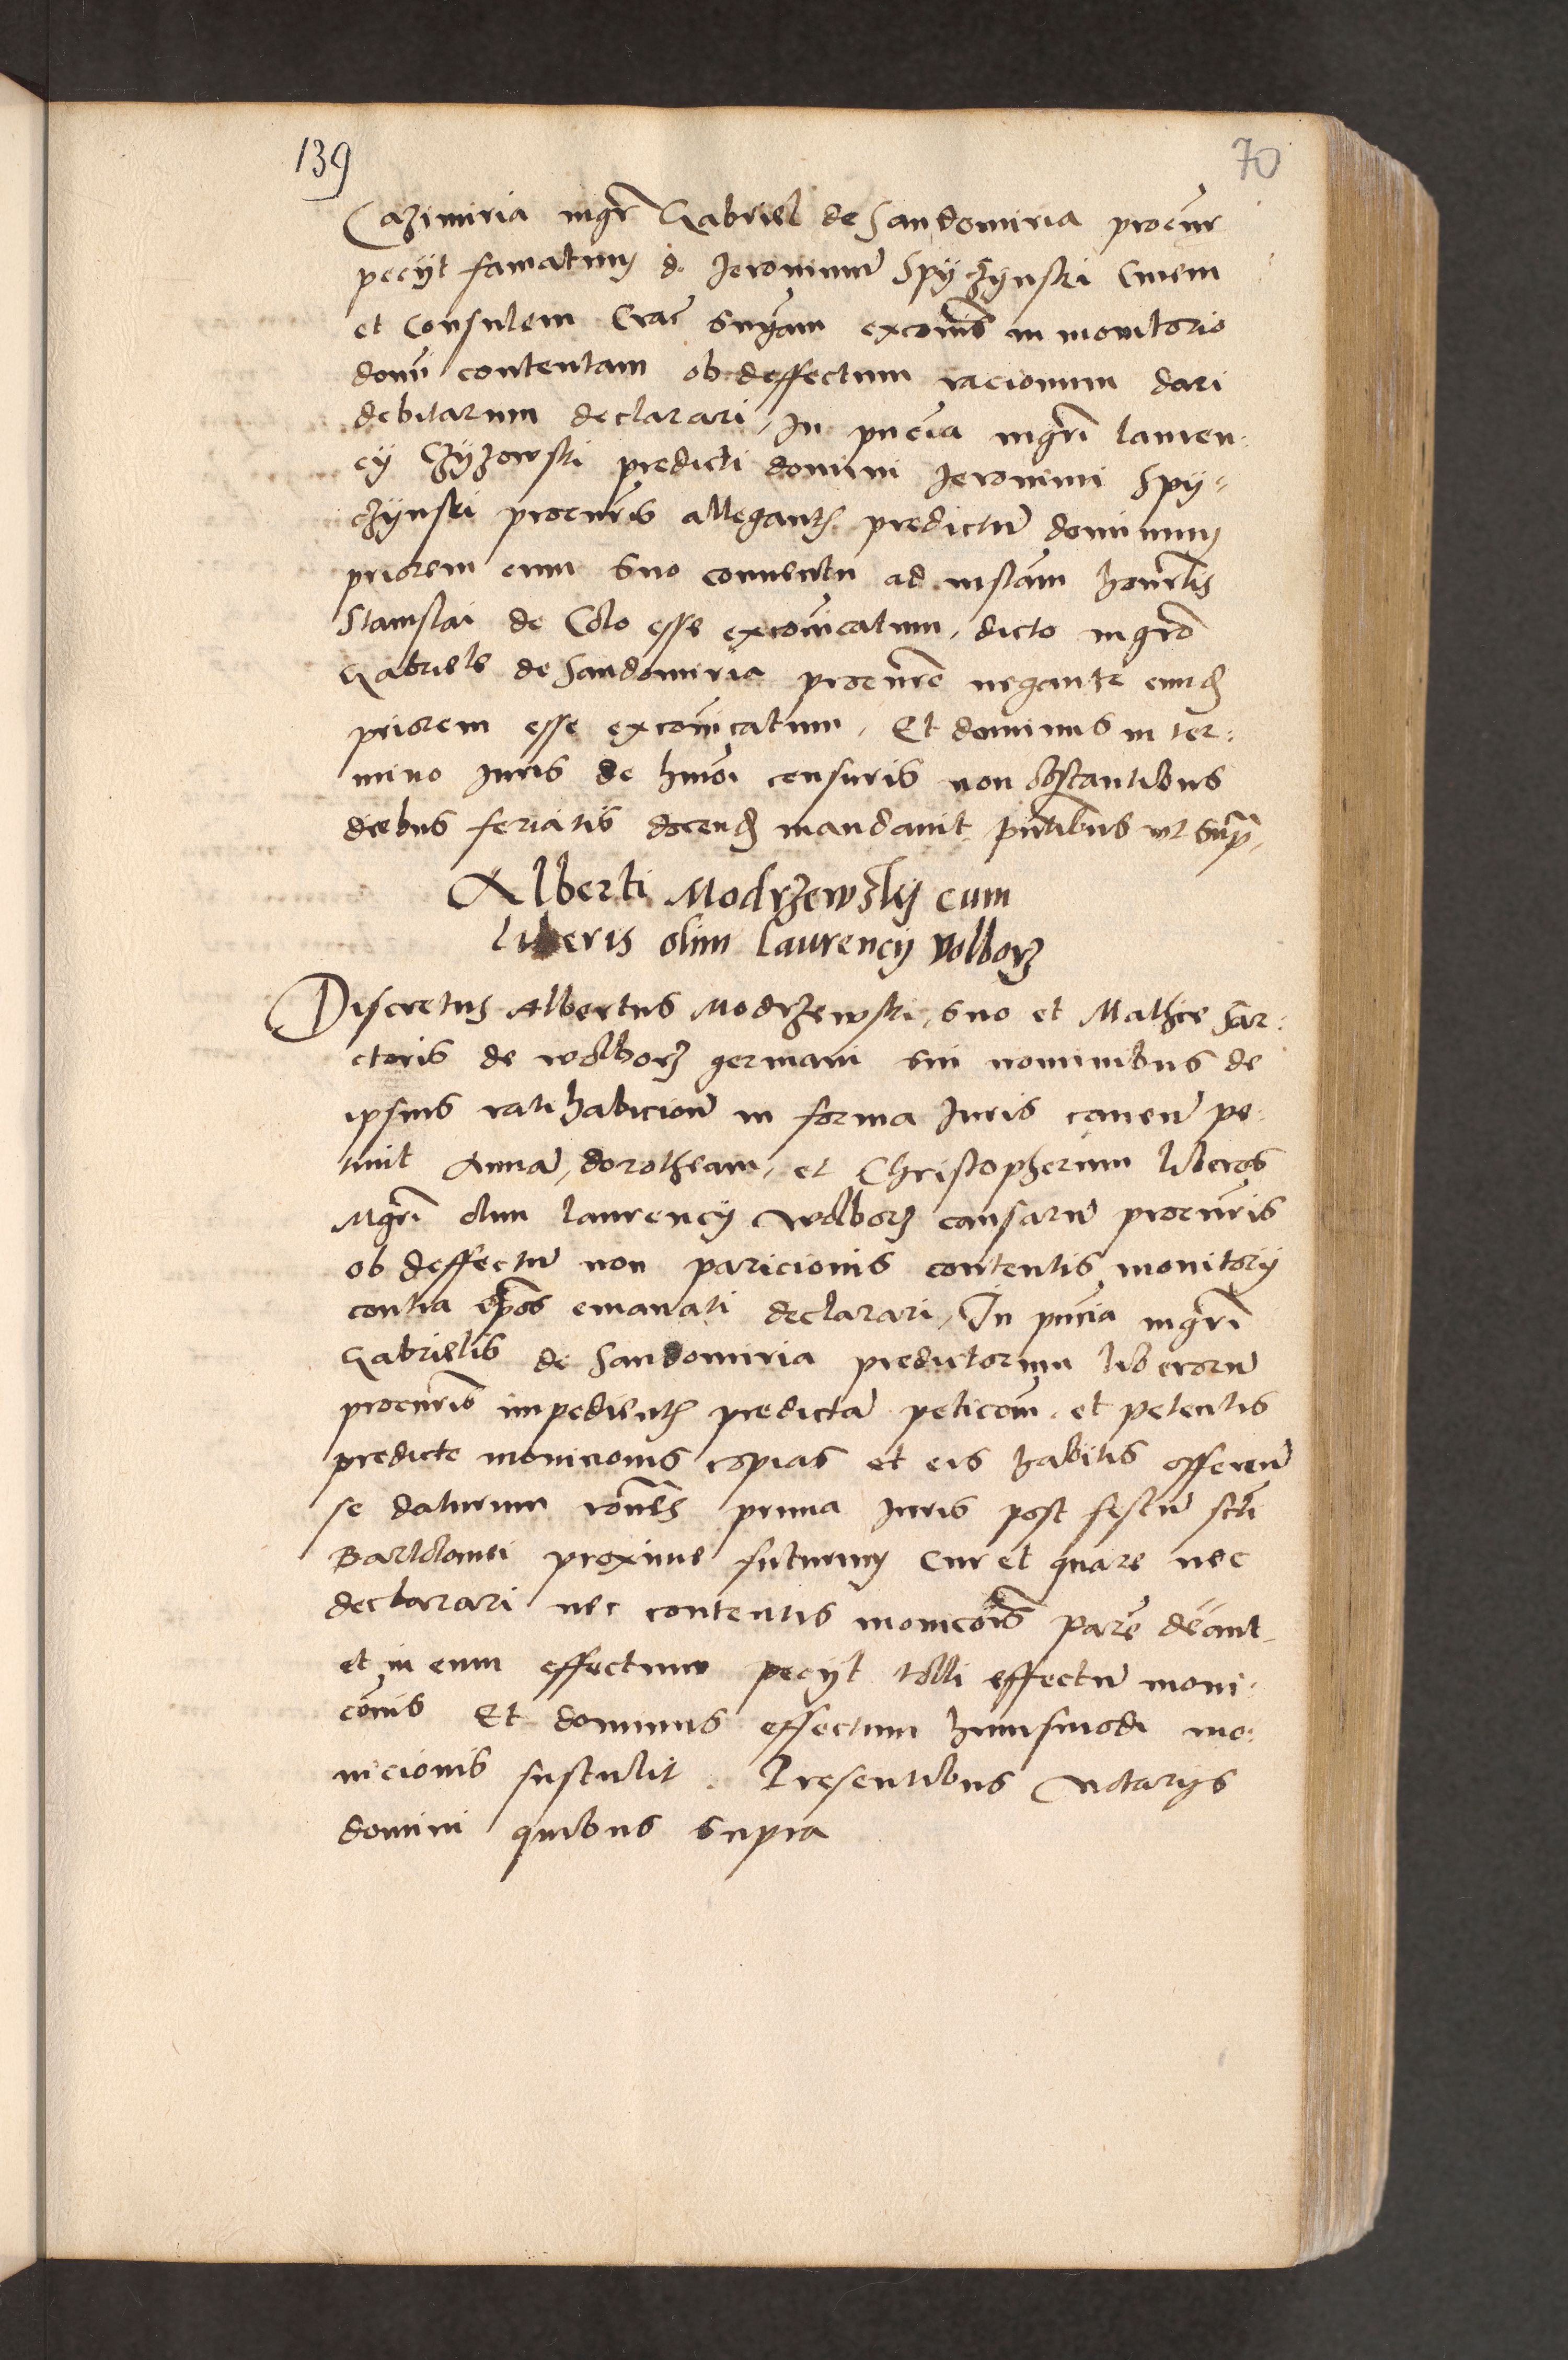 139
70
Cazimiria mgr Gabriel de Sandomiria procur
peciit famatum d. Jeronimum Spyczynski Civem
et Consulem Crac snyam excomis in monitorio
domi contentam ob deffectum racionum dari
debitarum declarari, In pncia mgri lauren-
cy Czyzowski predicti domini Jeronimi Spy-
czynski procuris allegantis predictum dominum
priorem cum suo conventu ad instam honorlis
Stanislai de Colo esse excommicatum, dicto mgro
Gabriele de Sandomiria procure negante eundem
priorem esse excommicatum, Et dominus in ter:
mino Juris de hmoi censuris non obstantibus
diebus feriatis docend mandavit pntibus ut supra
Alberti Modrzewsky cum
liberis olim laurencij Volborz
Discretus Albertus Modrzewski, suo et Mathie Sar:
ctoris de wolborz germani sui nominibus de
ipsius ratihabicione in forma Juris caven pe:
tiuit Annam, dorotheam, et Christopherum liberos
Mgri olim laurencij wolborz causarum procuris
ob deffectum non paricionis contentis monitorij
contra ipsos emanati declarari, In pncia mgri
Gabrielis de Sandomiria predictorum liberorum
procuris impedientis predictam peticom, et petentis
predicte monicionis copias et eis habitis offeren
se daturum rones prima Juris post festum scti
Bartolomei proxime futurum Cur et quare nec
declarari nec contentis monicois pare debeant
et in eum effectum peciit tolli effectum moni:
cionis Et dominus effectum huiusmodi mo:
nicionis sustulit. Presentibus Notarijs
domini quibus supra